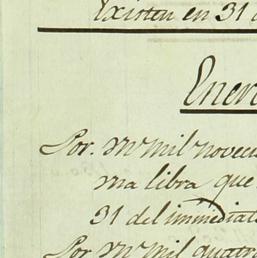 Existen en 31 d
Enero
Por. Mrs mil noveci
ma libra que
31 del immediat
Por Mrs mil quatro